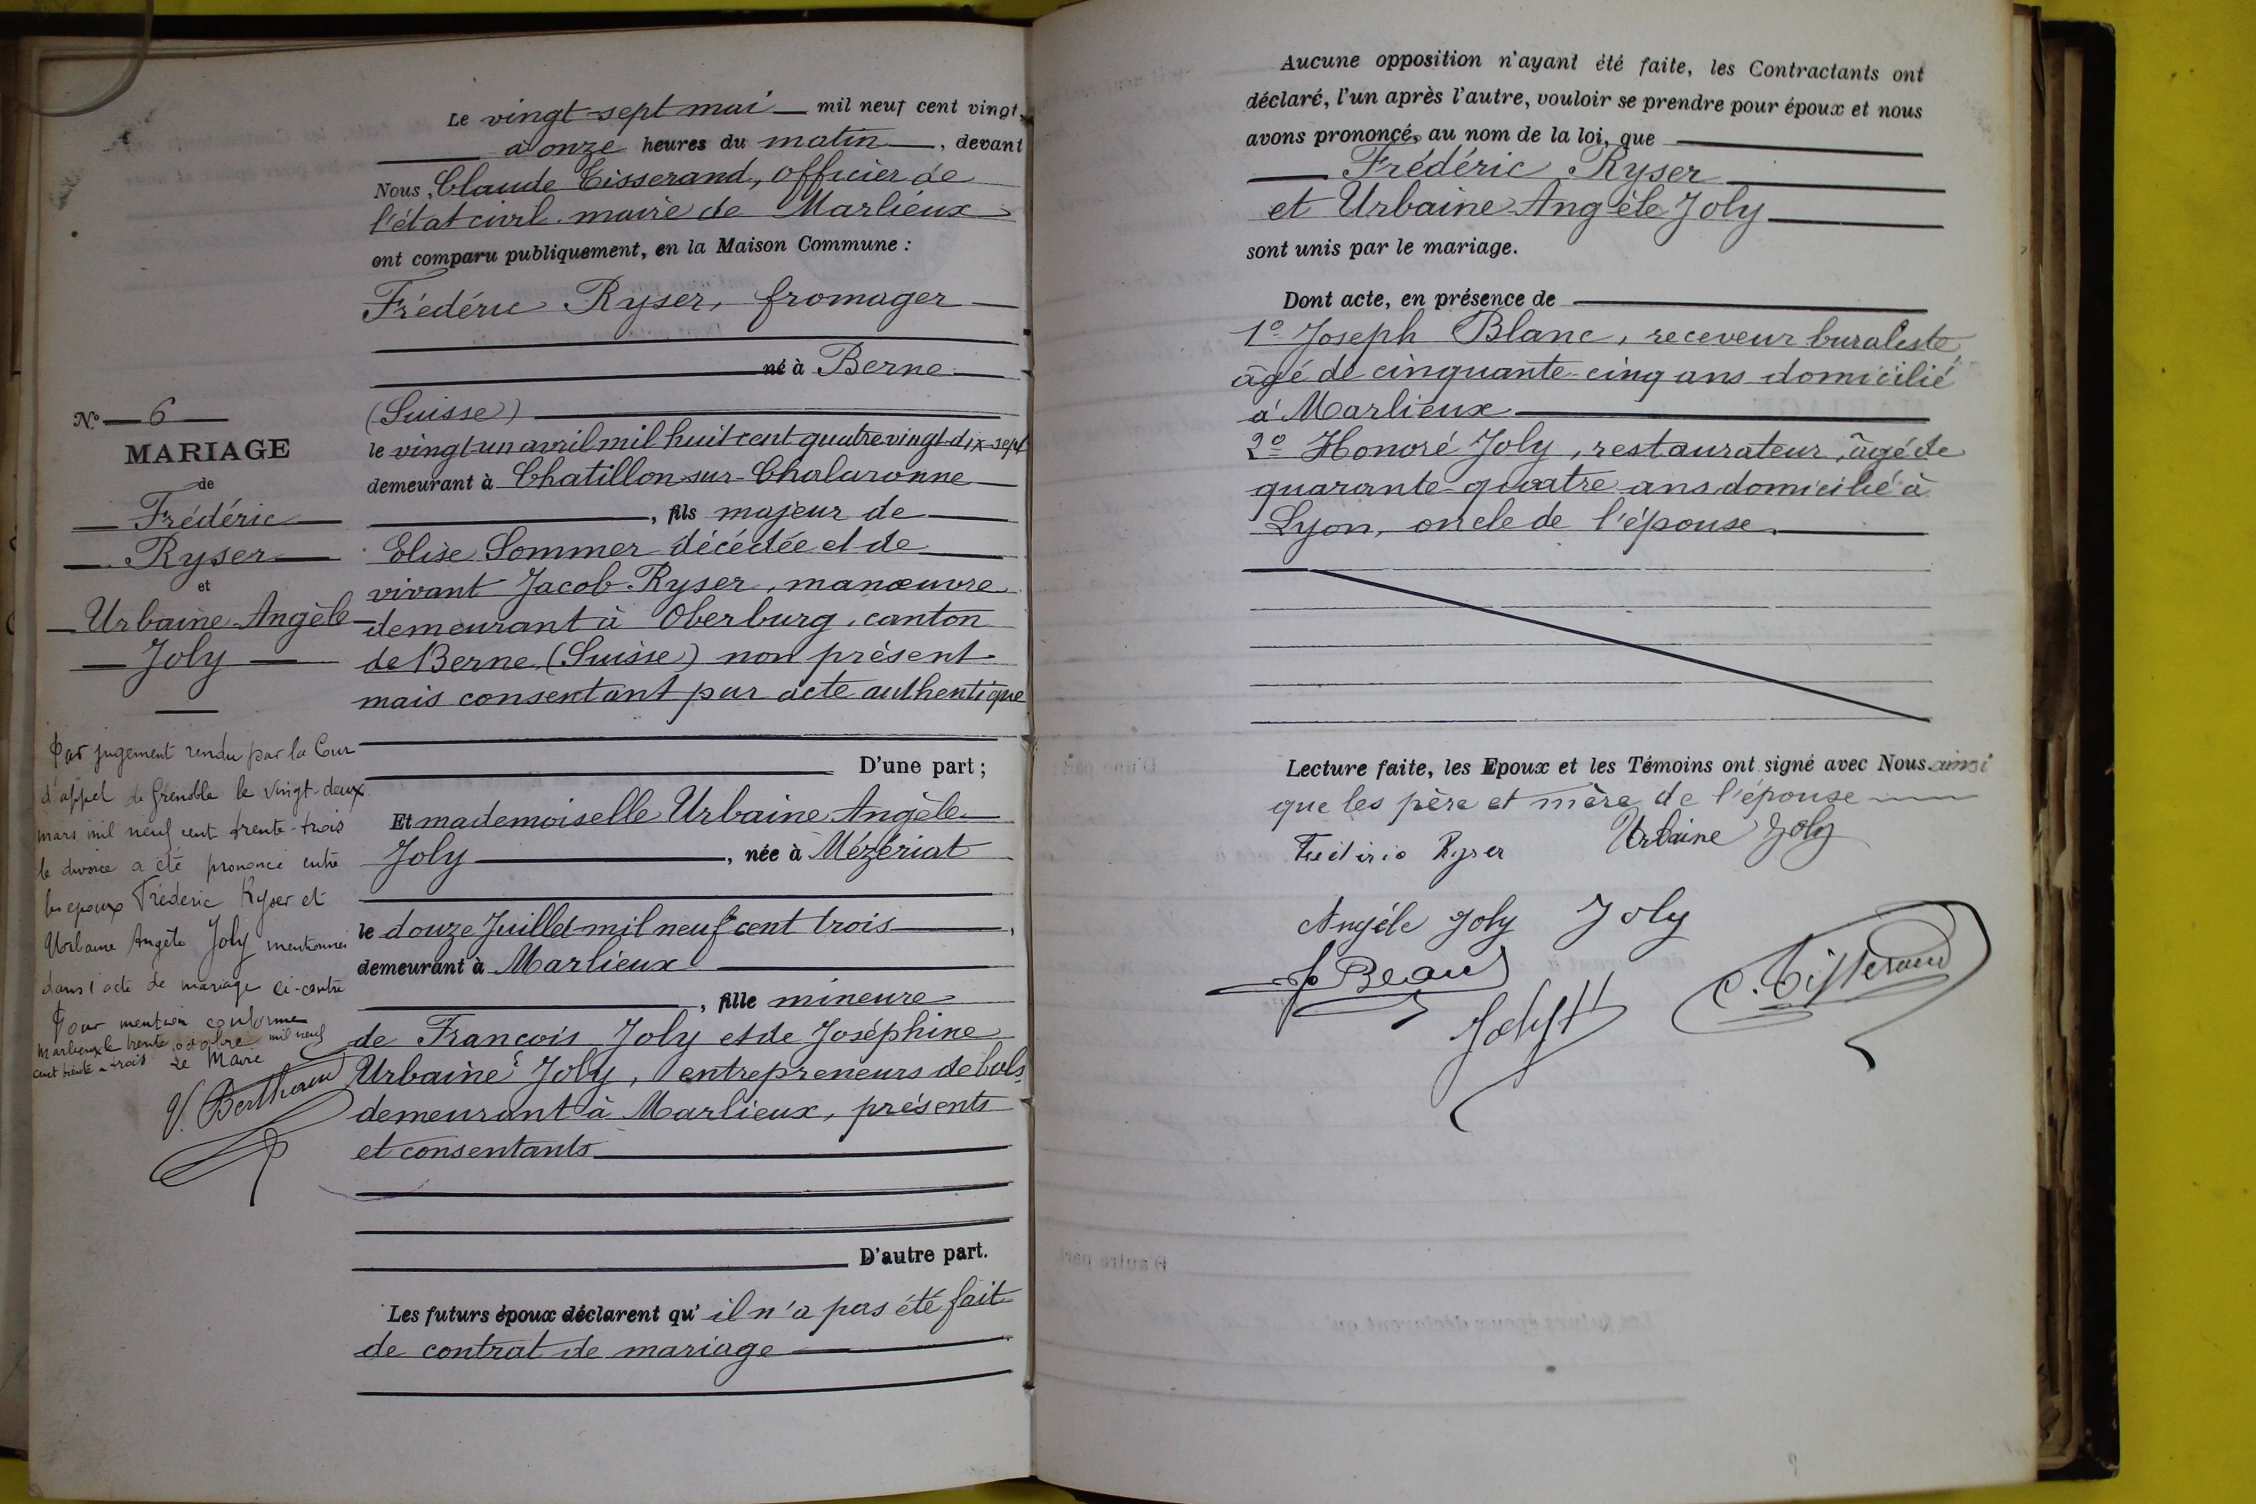 Le vingt-sept mai mil neuf cent vingt,
à onze heures du matin, devant
Nous, Claude Tisserand, officier de
l'état civil maire de Marlieux
ont comparu publiquement, en la Maison Commune :
Frédéric Ryser, fromager
né à Berne
(Suisse)
le vingt-un avril mil huit cent quatre vingt-dix-sept
demeurant à Chatillon-sur-Chalaronne
, fils majeur de
Elise Sommer décédée et de
vivant Jacob Ryser, manœuvre
demeurant à Oberburg, canton
de Berne (Suisse) non présent
mais consentant par acte authentique
D'une part ;
Et mademoiselle Urbaine Angèle
Joly, née à Mézériat
le douze Juillet mil neuf cent trois,
demeurant à Marlieux
, fille mineure
de François Joly et de Joséphine
Urbaine Joly, entrepreneurs de bals
demeurant à Marlieux, présents
et consentants
D'autre part.
Les futurs époux déclarent qu'il n'a pas été fait
de contrat de mariage
N° 6
MARIAGE
de
Frédéric
Ryser
et
Urbaine Angèle
Joly
Par jugement rendu par la Cour
d'appel de Grenoble le vingt-deux
mars mil neuf cent trente-trois
le divorce a été prononcé entre
les époux Frédéric Ryser et
Urbaine Angèle Joly mentionnés
dans l'acte de mariage ci-contre
Pour mention conforme
Marlieux le trente octobre mil neuf
cent trente-trois Le Maire
V. Berthoud
Aucune opposition n'ayant été faite, les Contractants ont
déclaré, l'un après l'autre, vouloir se prendre pour époux et nous
avons prononcé, au nom de la loi, que
Frédéric Ryser
et Urbaine Angèle Joly
sont unis par le mariage.
Dont acte, en présence de
1º Joseph Blanc, receveur buraliste,
âgé de cinquante-cinq ans domicilié
à Marlieux
2º Honoré Joly, restaurateur, âgé de
quarante-quatre ans domicilié à
Lyon, oncle de l'épouse.
Lecture faite, les Epoux et les Témoins ont signé avec Nous ainsi
que les père et mère de l'épouse
Frédéric Ryser Urbaine Joly
Angèle Joly Joly
C. Tisserand
Joly H